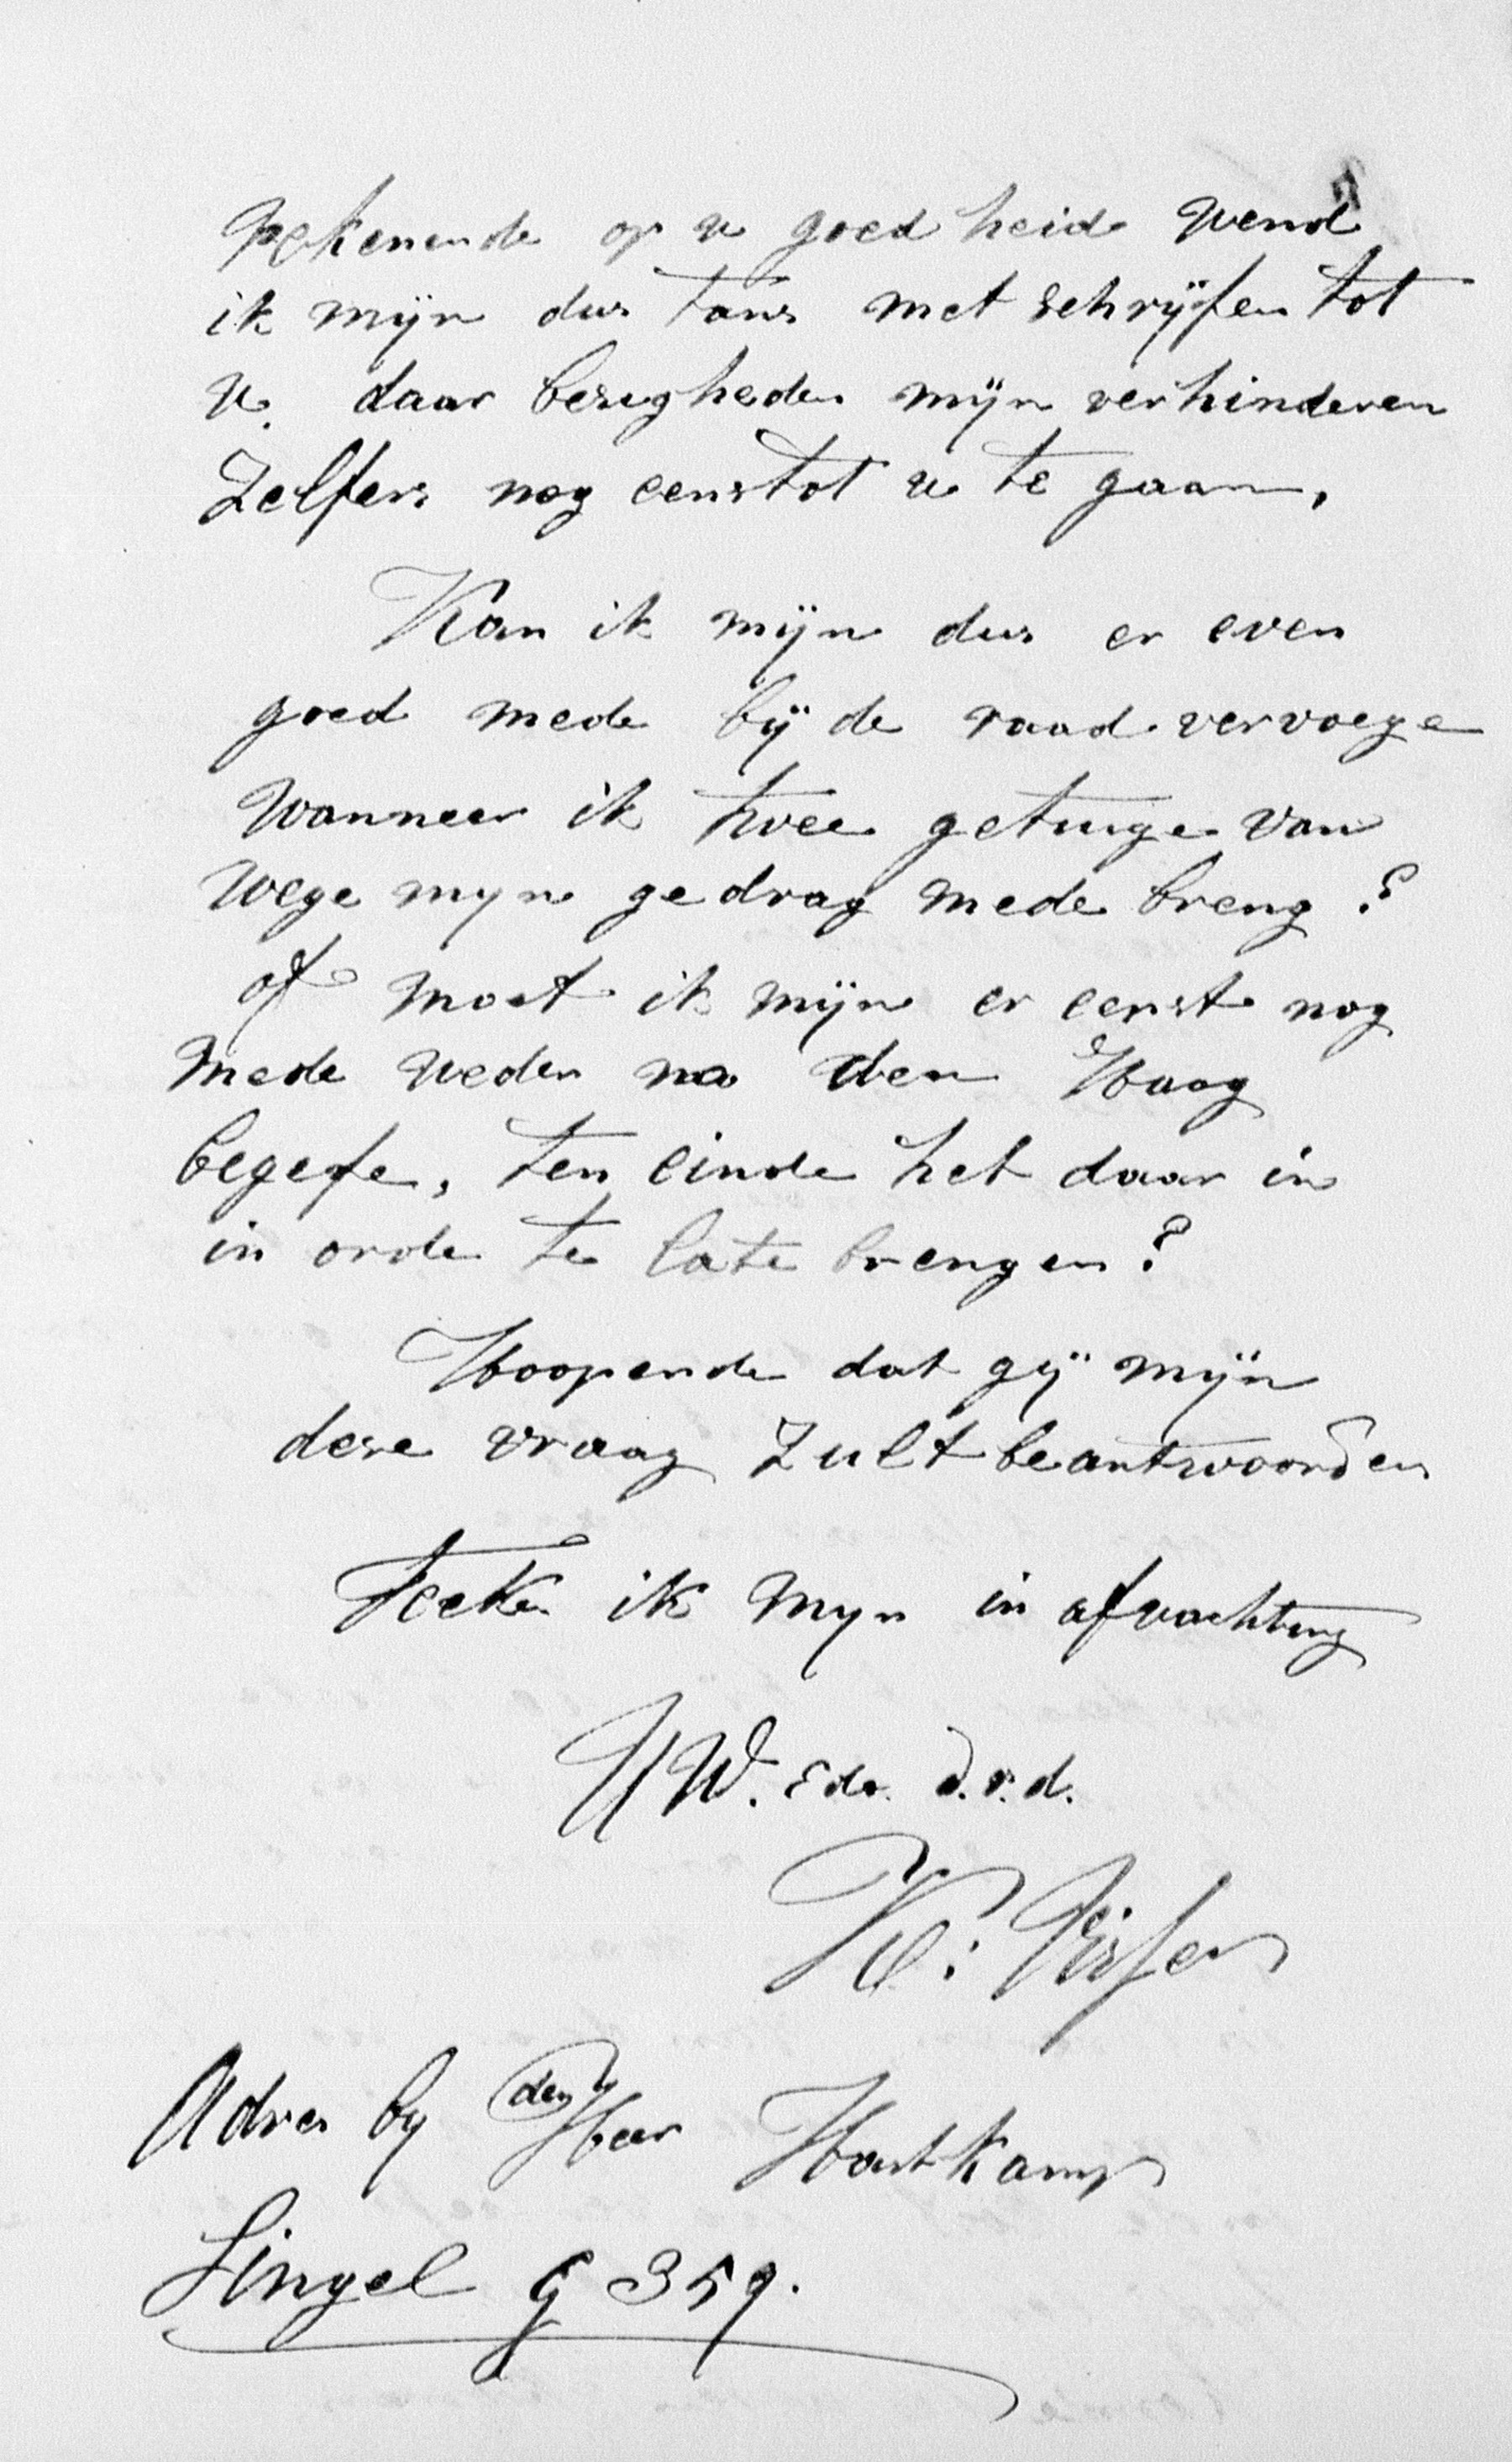 Rekenende op u goed heid wend
ik mijn dus tans met schrijfen tot
u. daar besigheden mijn verhinderen
Zelfers nog eens tot u te gaan,
Kan ik mijn dus er even
goed mede bij de raad vervoege
Wanneer ik twee getuige van
wege myn gedrag mede breng?
of moet ik mijn er eerst nog
mede weder na den Haag
begefe, ten einde het daar in
in orde te late brengen?
Hoopende dat gij mijn
dese vraag Zult beantwoorden
Teeke ik myn in afwachting
UW. Edr. d.v.d.
Adres by den Heer Hartkamp
Singel G 359.